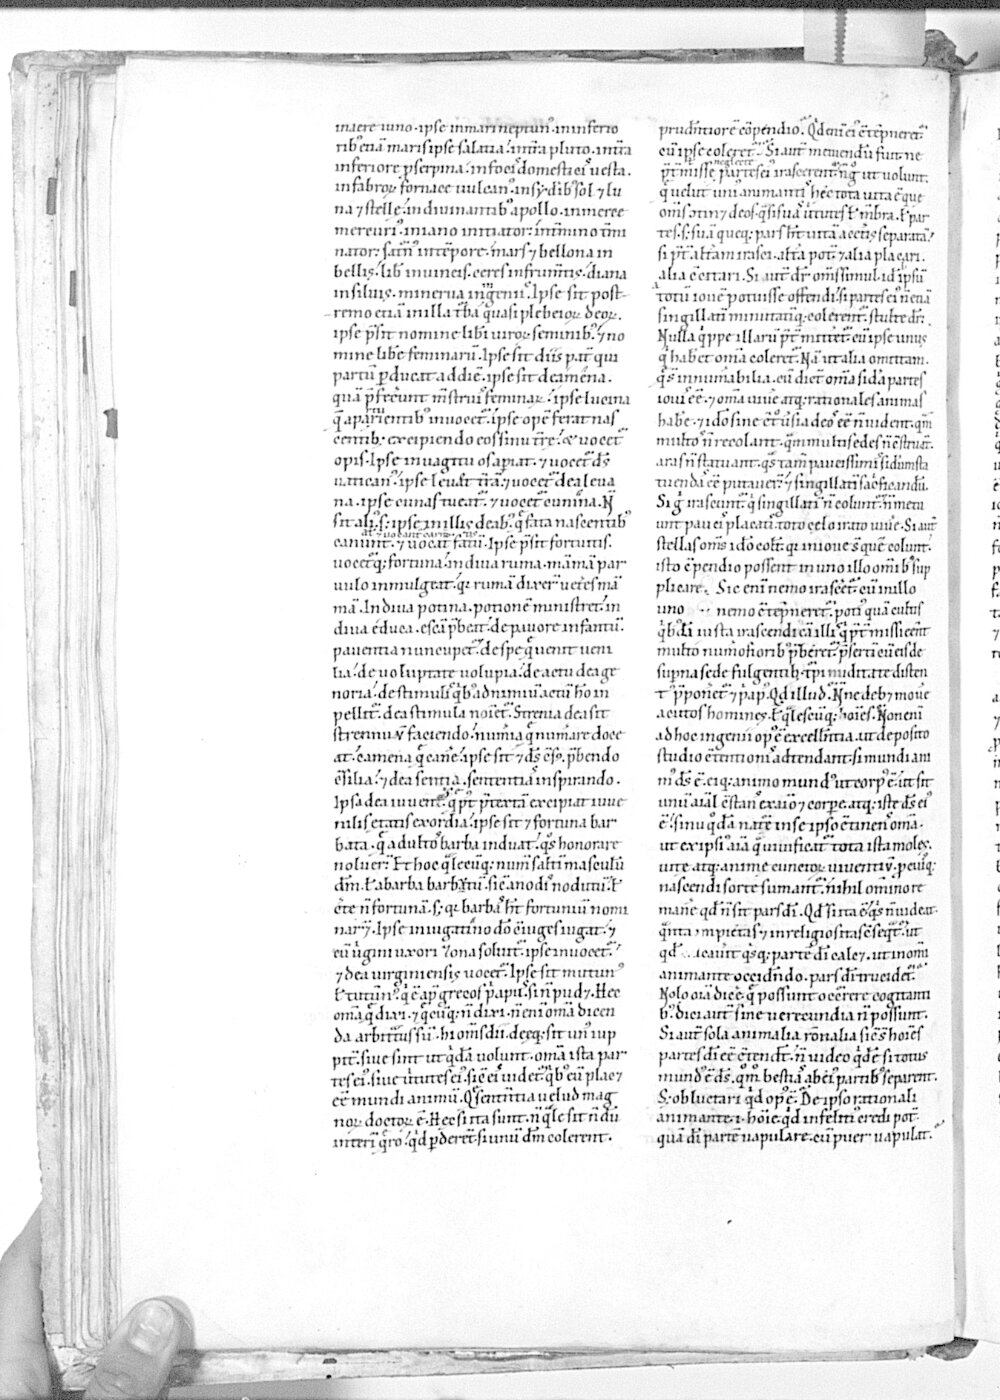 inaere iuno. ipse inmari neptun᷒. in inferio
rib᷒ enā maris ipse salatia. int̄ra pluto. int̄ra
inferiore p̱serpina. in focıs domesticıs uesta.
infabroꝝ fornace uulcan᷒. insẏdib᷒ sol ⁊ lu
na ⁊ stellę. in diuinantib᷒ apollo. inmerce
mercuri᷒. in iano initiator. int̄mino t̄mi
nator. saturn᷒ int̄epore. mars ⁊ bellona in
bellis. lib̄ inuineis. ceres infrum̄tis. diana
insiluis. minerua inīgeniis. Ipse sit post
remo etiā inilla t̄ba quasi plebeioꝝ deoꝝ.
ipse p̄sit nomine libi uiroꝝ seminib᷒. ⁊ no
mine libe feminarū. Ipse sit diis pat̄ qui
partū p̱ducat addiē. ipse sit dea mēna.
quā p̄fecer̄unt m̄struis feminaꝝ. ipse lucina
q̄ aparturientib᷒ inuocet̄. ipse opē ferat nas
centib; excipiendo eos sinu t̄re. & uocet̄
opis. Ipse inuagitu os ap̱iat. ⁊ uocet̄ ds̄
uatican᷒. ipse leuet t̄ra. ⁊ uocet̄ dea leua
na. ipse cunas tueat̄. ⁊ uocet̄ cunina. N̄
sit ali᷒. s; ipse inillis deab᷒. q̄ fata nascentib᷒
canunt. ⁊ uocāt̄ carm̄tes. Ipse p̄sit fortuitis.
uocet̄q; fortuna. in diua ruma. māmā par
uulo inmulgeat. q̇ rumā dixer̄ uet̄es mā
mā. In diua potina. potionē ministret. in
diua educa. escā p̄beat. de pauore infantiū.
pauentia nuncupet̄. de spe q̄ uenit ueni
lia. de uoluptate uolupia. de actu deage
noria. de stimulis q̇b᷒ adnimiū actū hō in
pellit̄. dea stimula noīet̄. Strenia dea sit
strennuū faciendo. num̄ia q̄ numerare doce
at. camena q̄ canē. ipse sit ⁊ ds̄ c̄s᷒. p̄bendo
c̄silia. ⁊ dea sentia. sententias inspirando.
Ipsa dea iuuent᷒. q̄ p᷒t p̄textā excipiat iuue
nilis etatis exordia. ipse sit ⁊ fortuna bar
bata. q̄ adultos barba induat. q̇s honorare
noluer̄. Et hoc q̄lecūq; num̄ saltī masculū
dm̄. t̄ abarba barbatū. sic̄ anodis nodutū. t̄
c̄te n̄ fortunā. s; q̇ barbas ht̄ fortuniū nomi
narēt. Ipse in iugatino dō c̄iuges iugat. ⁊
cū ūgini uxori zona soluit̄. ipse inuocet̄.
⁊ dea uirginiensis uocet̄. Ipse sit mutun᷒
t̄ tutun᷒. q̇ ē ap̄ grecos p̄apus. si n̄ pudꝫ. Hec
om̄a q̄ dixi. ⁊ q̄cūq; n̄ dixi. n̄ enī om̄a dicen
da arbitt᷒ sū. hi om̄s dii. deęq; sit un᷒ iup
pit̄. siue sint ut q̇dā uolunt. om̄a ista par
tes ei᷒. siue ūtutes ei᷒. sic̄ eis uidet̄. q̇b᷒ eū placꝫ
eē mundi animū. Q̄ sententia uelud mag
noꝝ doctoꝝ ē. Hec si ita sunt. n̄ q̄le sit n̄dū
interī q̄ro. q̇d p̱derēt. si unū dm̄ colerent.
prudentiore cōpendio. Q̇d eni ei᷒ c̄tēpneret̄.
cū ipse coleret̄. Si aut̄ metuendū fuit ne
p̄t̄misse neglecte partes ei᷒ irascerent̄. n̄ g᷒ ut uolunt.
q̄ uelut uni᷒ animantis hęc tota uita ē. que
om̄s c̄tin⁊ deos. q̄si suas ūtutes t̄ mb̄ra. t̄ par
tes. s; sua queq; pars ht̄ uitā a cet̄is separatā.
si p᷒t alt̄a irasci. alt̄a pot. ⁊ alia placari.
alia c̄citari. Si aut̄ dr̄ om̄s simul. id ipsū
totū ioue potuisse offendi. si partes ei᷒ n̄ enā
singillatī minutatīq; colerent̄. stulte dr̄.
Nulla q̇ppe illarū p̄t̄ mittet̄. cū ipse unus
q̇ habet om̄a coleret̄. Nā ut alia omittam.
q̄ s̄ innumabilia. cū dicēt om̄a sidera partes
iouis eē. ⁊ om̄a uiuere atq; rationales animas
habere. ⁊ ido sine c̄t᷒uersia deos eē n̄ uident. q̄m
multos n̄ recolant. q̄m multis edes n̄ c̄struāt.
aras n̄ statuant. q̄s tam̄ paucissimis siderum sta
tuendas eē putauer̄. ⁊ singillatī sac̄ficandū.
Si g᷒ irascunt̄. q̇ singillatī n̄ colunt̄. n̄ metu
unt paucis placatis. toto celo irato uiuere. Si aut̄
stellas om̄s ido colt̄. q̇ in ioue s̄ quē colunt.
isto c̄pendio possent in uno illo om̄ib᷒ sup
plicare. Sic enī nemo irascet̄. cū in illo
uno nemo c̄tēpneret̄. poti᷒ quā cultis
q̇b᷒dā iusta irascendi cā illis q̇ p̄t̄ missi eēnt
multo num̄osiorib᷒ p̄beret̄. p̄sertī cū eis de
supna sede fulgentib; t̄pi nuditate disten
t᷒ p̄ponet̄ ⁊ p̄ap᷒. Q̇d illud. N̄ne debꝫ mouē
acutos homines. t̄ q̄lescūq; hoīes. Non eni
ad hoc ingenii op᷒ ē excellētia. ut deposito
studio c̄tentionis adtendant. si mundi ani
m᷒ ds̄ ē. eiq; animo mund᷒ ut corp᷒ ē. ut sit
unū aīal c̄stans ex aīo ⁊ corpe. atq; iste ds̄ ei᷒
ē. sinu q̇dā naturē in se ipso c̄tinens om̄a.
ut ex ipsi᷒ aīa q̄ uiuificat̄ tota ista moles.
uite atq; anime cunctoꝝ uiuentiū. p̱ cui᷒q;
nascendi sorte sumant̄. nihil omino re
manē qd̄ n̄ sit pars dī. Q̇d si ita ē. q̇s n̄ uideat.
q̄nta impietas ⁊ inreligiositas c̄seq̄t̄. ut
qd̄ calcauit q̇sq; parte dī calcꝫ. ut in omī
animante occidēndo. pars dī trucidet̄.
Nolo oīa dicē. q̄ possunt occ̄rere cogitanti
b᷒. dici aut̄ sine uerecundia n̄ possunt.
Si aut̄ sola animalia rōnalia sic̄ s̄ hoīes
partes dī eē c̄tendt̄. n̄ uideo q̇dē si totus
mund᷒ ē ds̄. q̄m bestias ab ei᷒ partib᷒ separent.
S; obluctari q̇d op᷒ ē. De ipso rationali
animante. i. hoīe. q̇d infelici᷒ credi pot.
quā dī partē uapulare. cū puer uapulat.